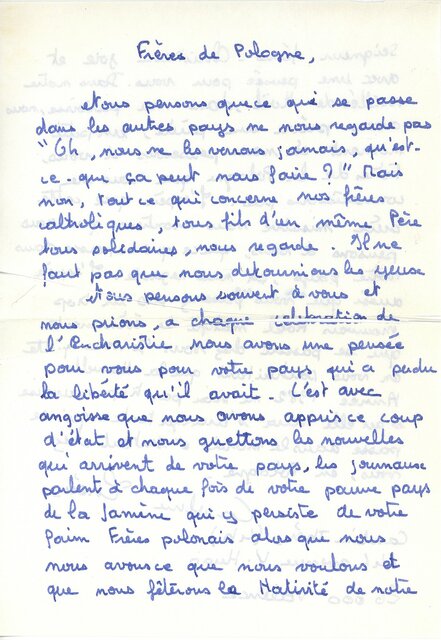 Frères de Pologne,
Nous pensons que ce qui se passe
dans les autres pays ne nous regarde pas
"Oh, nous ne les verrons jamais, qu'est-
ce-que ça peut nous faire ?" Mais
non, tout ce qui concerne nos frères
catholiques, tous fils d'un même Père
tous solidaires, nous regarde. Il ne
faut pas que nous détournions les yeuse
Nous pensons souvent à vous et
nous prions, a chaque celebration de
l'Eucharistie, nous avons une pensée
pour vous pour votre pays qui a perdu
la libérté qu'il avait. C'est avec
angoisse que nous avons appris ce coup
d'état et nous guettons les nouvelles
qui arrivent de votre pays, les journause
parlent à chaque fois de votre pauvre pays
de la famine qui y persiste de votre
faim Frères polonais alors que nous
nous avons ce que nous voulons et
que nous fêterons la Nativité de notre